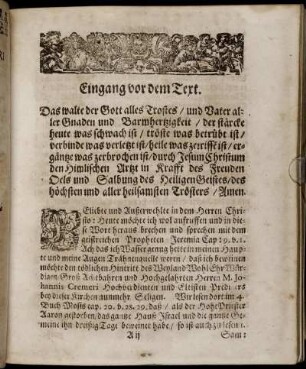 Eingang vor dem Text.
Das walte der Gott alles Trostes / und Vater al-
ler Gnaden und Barmhertzigkeit / der stärcke
heute was schwach ist / tröste was betrübt ist /
verbinde was verletzt ist / heile was zerißt ist / er-
gäntze was zerbrochen ist / durch Jesum Christum
den Himlischen Artzt in Krafft des Freuden
Oels und Salbung des Heiligen Geistes / des
höchsten und aller heilsamsten Trösters / Amen.
Geliebte und Außerwehlte in dem Herren Chri-
sto: Heute möchte ich wol aufruffen und in die-
se Wort heraus brechen und sprechen mit dem
geistreichen Propheten Jeremia Cap. 9. v. 1.
Ach das ich Wasser genug hette in meinen Haup-
te und meine Augen Thränenquelle weren / daß ich beweinen
möchte den tödlichen Hintritt des Weyland Wohl Ehr Wür-
digen Groß Achtbahren und Hochgelahrten Herren M. Jo-
hannis Cremeri Hochverdienten und Eltisten Predi-
bey dieser Kirchen nunmehr Seligen. Wir lesen dort im 4.
Buch Mosis cap. 20. v. 28. 29. daß / als der Hohe Priester
Aaron gestorben / das gantze Hauß Israel und die gantze Ge-
meine ihn dreißig Tage beweinet habe / so ist auch zu lesen 1.
A ij Sam: